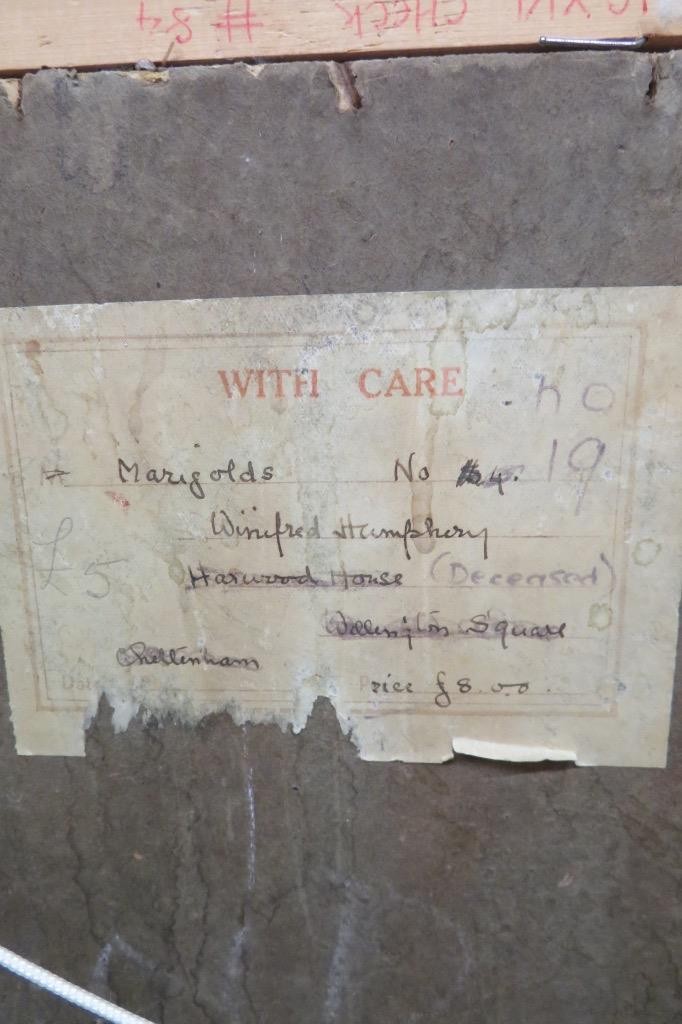 CHECK # 84
WITH CARE
no
Marigolds No 4. 19
Winifred Humphery
£5 Harwood House (Deceased)
Wellington Square
Cheltenham
Price £8.0.0.